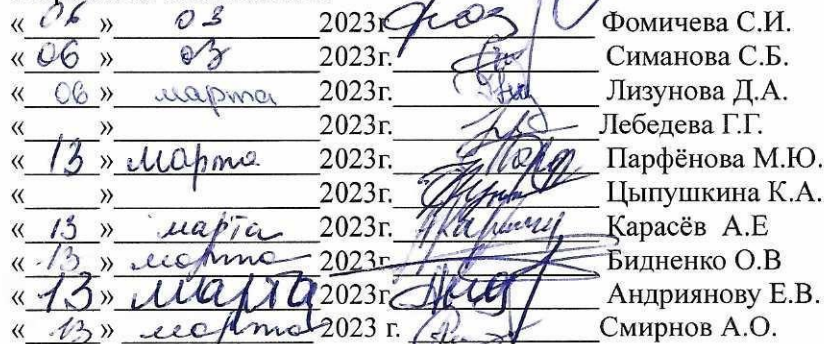 « 06 » 03 2023г. Фомичева С.И.
« 06 » 03 2023г. Симанова С.Б.
« 06 » марта 2023г. Лизунова Д.А.
« » 2023г. Лебедева Г.Г.
« 13 » марта 2023г. Парфёнова М.Ю.
« » 2023г. Цыпушкина К.А.
« 13 » марта 2023г. Карасёв А.Е
« 13 » марта 2023г. Бидненко О.В
« 13 » марта 2023г. Андриянову Е.В.
« 13 » марта 2023 г. Смирнов А.О.